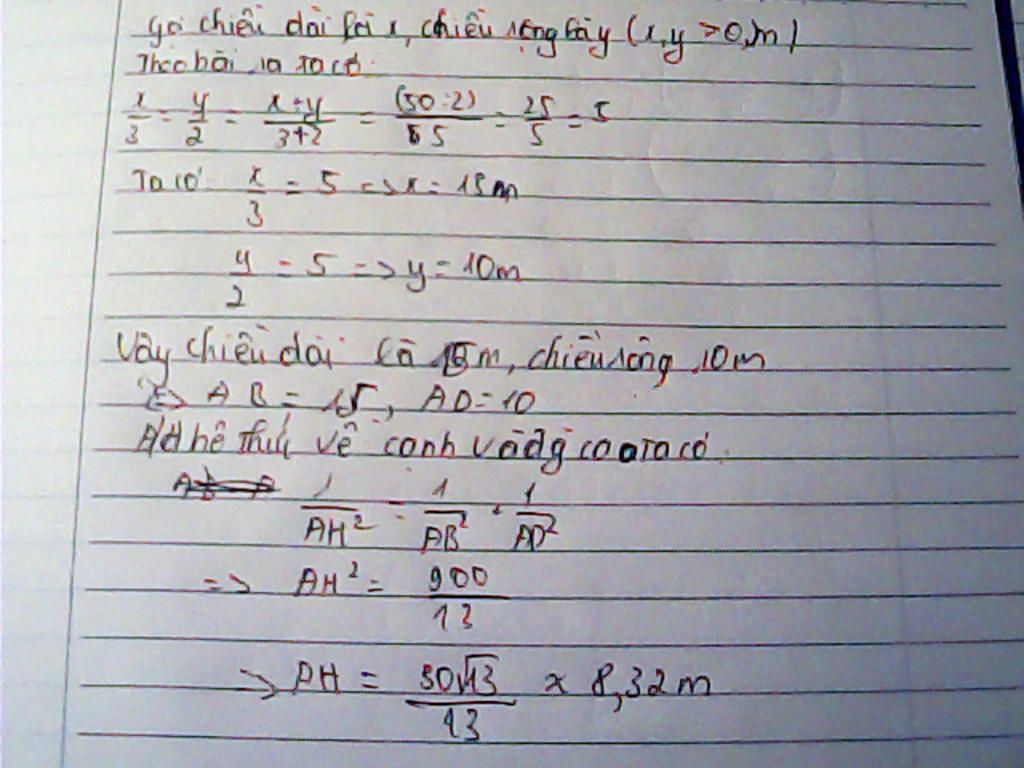 Gọi chiều dài là x, chiều rộng là y (x,y >0,m)
Theo bài ra ta có
x/3 = y/2 = x+y/3+2 = (50:2)/5 = 25/5 = 5
Ta có x/3 = 5 => x = 15m
y/2 = 5 => y = 10m
Vậy chiều dài là 15m, chiều rộng 10m
=> AB = 15, AD = 10
hệ thức về cạnh và đg cao ta có
1/AH² = 1/AB² + 1/AD²
=> AH² = 900/13
=> AH = 30√13/13 ≈ 8,32m